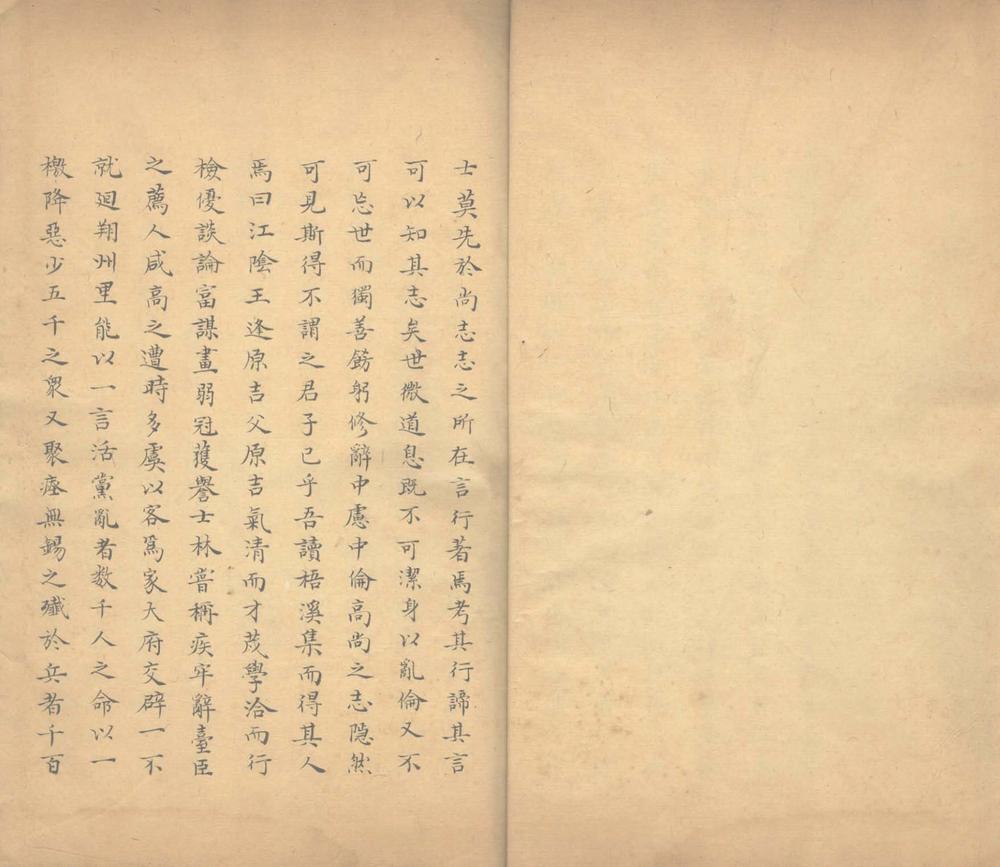 士莫先於尚志志之所在言行著焉考其行諦其言
可以知其志矣世微道息既不可潔身以亂倫又不
可忘世而獨善飭躬修辭中慮中倫高尚之志隠然
可見斯得不謂之君子已乎吾讀梧溪集而得其人
焉曰江隂王逢原吉父原吉氣清而才茂學洽而行
檢優談論富謀畫弱冠獲譽士林嘗稱疾牢辭臺臣
之薦人咸高之遭時多虞以客爲家大府交辟一不
就廻翔州里能以一言活黨亂者数千人之命以一
檄降惡少五千之衆又聚瘞無錫之殲於兵者千百